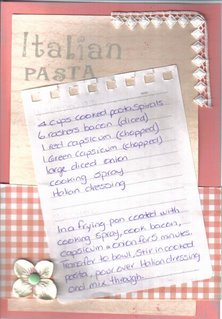 Italian
PASTA
4 cups cooked pasta spirals
6 rashers bacon (diced)
1 red capsicum (chopped)
1 Green capsicum (chopped)
large diced onion
cooking spray
Italian dressing
In a frying pan coated with
cooking spray, cook bacon,
capsicum & onion for 5 minutes.
Transfer to bowl. Stir in cooked
pasta, pour over Italian dressing
and mix through.